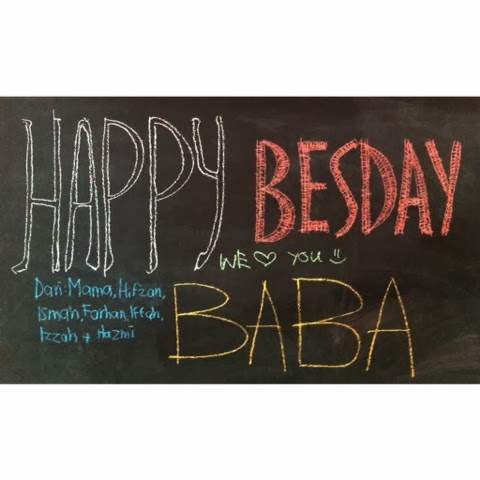 HAPPY BESDAY
WE ♡ YOU
BABA
Dari: Mama, Hifzan,
Ismah, Farhan, Iffah,
Izzah + Hazmi